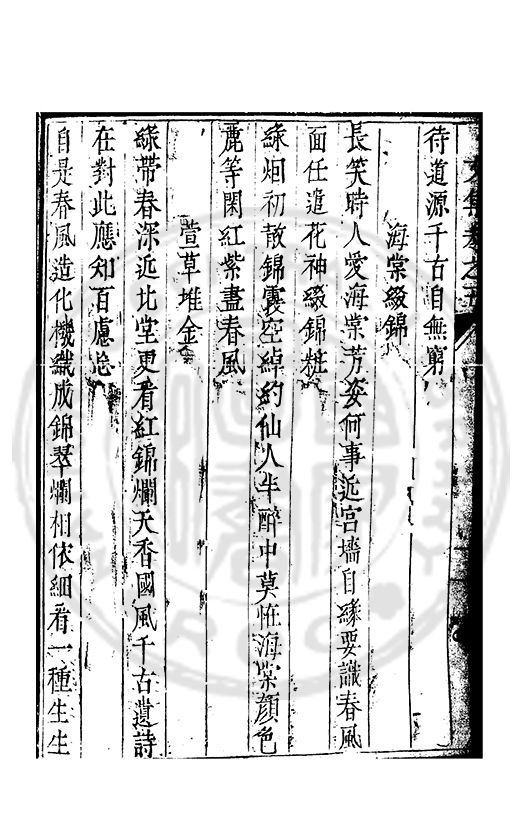 文集卷之五
待道源千古自無窮
海棠綴錦
長笑時人愛海棠芳姿何事近宮墻自緣要識春風
面任遣花神綴錦粧
綠烟初散錦霞空綽約仙人半醉中莫恠海棠顏色
麗等閑紅紫盡春風
萱草堆金
綠帶春深近北堂更看紅錦爛天香國風千古遺詩
在對此應知百慮忘
自是春風造化機織成錦翠爛相依細看一種生生